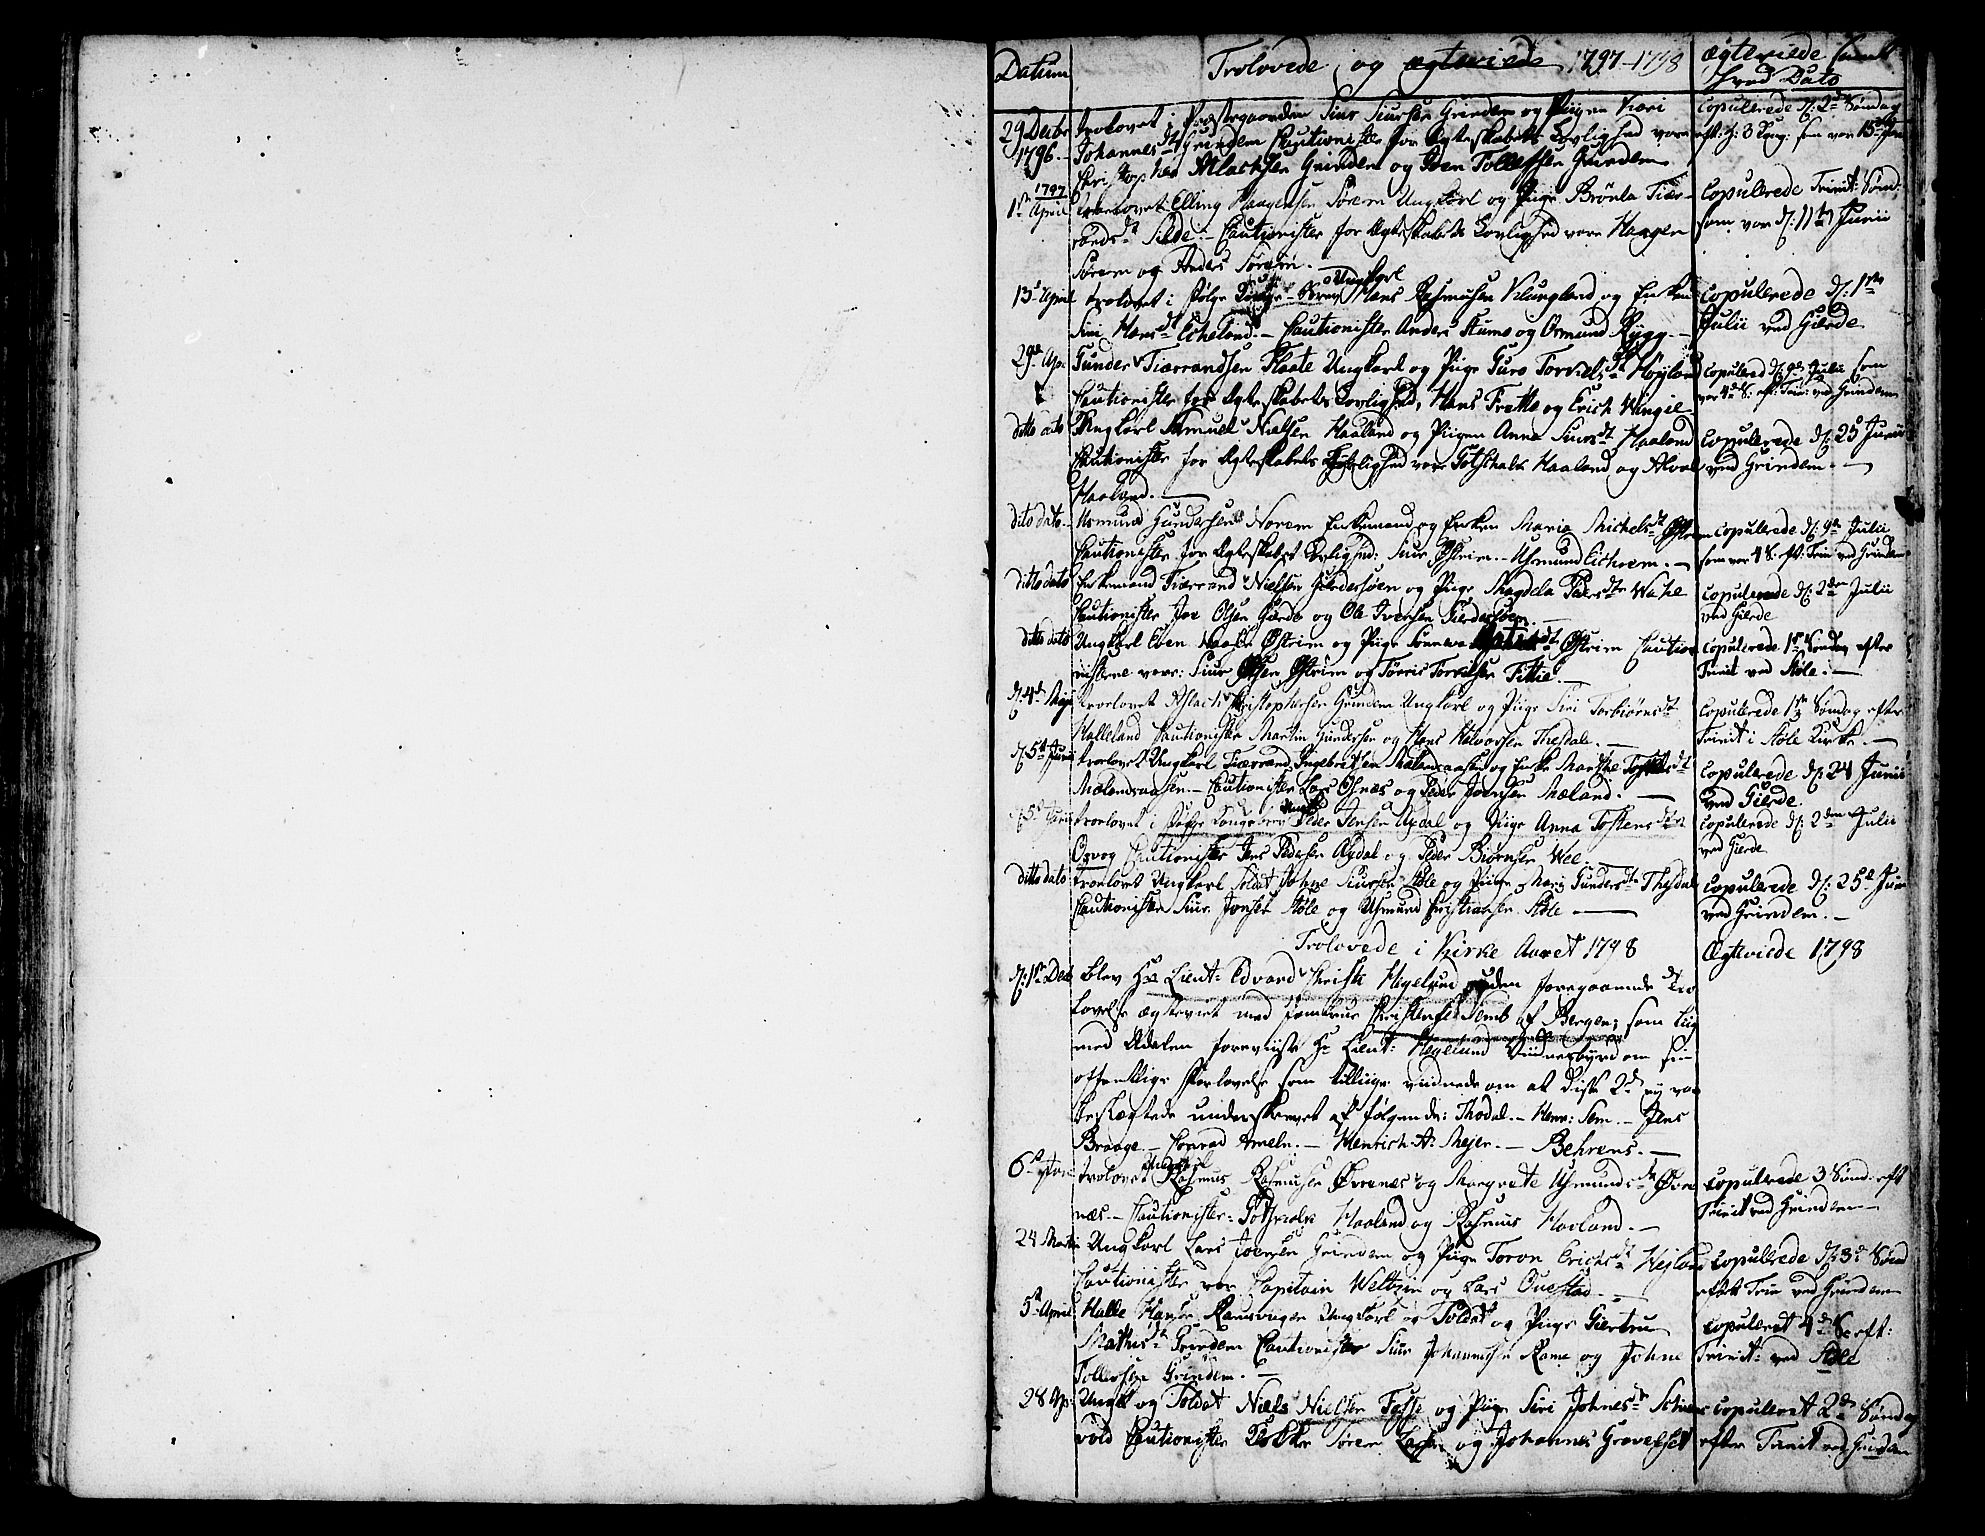 Datum
Trolovede og ægteviede 1797-1798
Ægteviede samt
hvad Dato
29 Decbr trolovet i Præstegaarden Siur Siursen Grindem og Pigen Kari
1796. Johannesdt Grindem Cautionister for Ægteskabets Lovlighed vare
Christopher Aslachsen Grindem og Iven Tollefsen Grindem
Copulerede d: 2d Søndag
eft: H: 3 Kong: som var 15 Jan
1797
1ste April trolovet Elling Haagensen Sørem Ungkarl og Pige Brönla Tiær-
randsdt Silde. Cautionister for Ægteskabets Lovlighed vare Haagen
Sörem og Anders Sørem.
Copulerede Trinit: Sönd:
som var d: 11te Junii
Ungkarl
13de April trolovet i Hans Rasmusen Klungland og Enken
Siri Hansdt Echeland. Cautionister Anders Stumo og Osmund Rygg
Copulerede d: 1ste
Julii ved Gierde
29de Apr. Gunder Tiærrandsen Flaate Ungkarl og Pige Guro Torkielsdt Høyland
Cautionister for Ægteskabets Lovlighed, Hans Frette og Erich Vingie
Copulered d: 9de Julii som
var 4de S: eft: Trin: ved Grindem
ditto dito Ungkarl Samuel Nielsen Haaland og Pigen Anna Siursdt Haaland
Cautionister for Ægteskabets Lovlighed vare Gotschalk Haaland og Alvar
Haaland.
Copulerede d: 25 Junii
ved Grindem.
dito dato Asmund Gundersen Norem Enkemand og Enken Maria Michelsdt Østrem
Cautionister for Ægteskabet Lovlighed: Siur Østrem. Asmund Eichrem.
copulerede d: 9de Julii
som var 4 S: eft: Trin ved Grindem
ditto dato Enkemand Tiærrand Nielsen Gierdersøen og Pige Magdela Pedersdtr Wahle
Cautionister Joe Olsen Gierde og Ole Iversen Gierdersøen.
copulerede d: 2den Julii
ved Gierde
ditto dato Ungkarl Even Østrem og Pige Sonneva Østrem Cautio-
nisterne vare: Siur Olsen Østrem og Torris Torkilsen Fittie.
copulerede 1ste Søndag efter
Trinit ved Støle.
d: 4de Maji trolovet Aslach Christophersen Grindem Ungkarl og Pige Siri Torbiörnsdt
Halleland Cautionister Martin Gundersen og Hans Halvorsen Thesdale.
copulerede 1ste Søndag efter
Trinit i Støle Kirke.
d: 5te Junii trolovet Ungkarl Tiærrand Ingebretsen Mælandsaasen og Enke Marthe
Mælandsaasen. Cautionister Lars Osnæs og Peder Joensen Mæland.
Copulerede d: 24 Junii
ved Gierde.
5te Junii trolovet i Peder Jensen Axdal og Pige Anna Tostensdtr
Osvog Cautionister Jens Pedersen Axdal og Peder Biörnsen Wee.
Copulerede d: 2den Julii
ved Gierde
ditto dato trolovet Ungkarl Soldat Johne Siursen Støle og Pige Mari Gundersdtr Thesdal
Cautionister Siur Jonsen Støle og Asmund Christiansen Støle
Copulerede d: 25de Juni
ved Grindem.
Trolovede i Kirke Aaret 1798
Ægteviede 1798
d: 1ste Dec blev Hr Lieut: Edvard Christie Hagelund uden foregaaende Tro-
lovelse ægteviet med Jomfrue Semb af Bergen; som liig-
med Adelen foreviiste Hr Lieut: Hagelund Vidnesbyrd om sin
offentlige som tillige vidnede om at disse 2de ey vare
beslægtede underskrevet af følgende: Thodal. Henr: Sem. Jens
Braage. Conrad Ameln. Henrich A: Mejer. Behrens.
Ungkarl
6te trolovet Rasmus Rasmusen Øvrenes og Margrete Asmundsdt Øvre-
næs. Cautionister: Gotschalk Haaland og Rasmus Havland.
copulerede 3 Sönd: eft
Trinit ved Grindem
24 Martii Ungkarl Lars Joensen Grindem og Pige Toron Erichsdt Hejland
Cautionister var Capitain Weltzin og Lars Ouestad.
copulerede d: 3de Sönd
efter Trin ved Grindem
5te April Halle Hansen Ramsvigen Ungkarl og Soldat og Pige Giertrue
Mathisdt Grindem Cautionister Siur Johannesen Rame og Johne
Tollefsen Grindem.
copuleret 4de S: eft:
Trinit: ved Støle
28 Apr: Ungk og Soldat Niels Nielsen Fosse og Pige Siri Johnesdt
vold Cautionister Sören og Johannes
copuleret 2den Søndag
efter Trinit ved Grindem